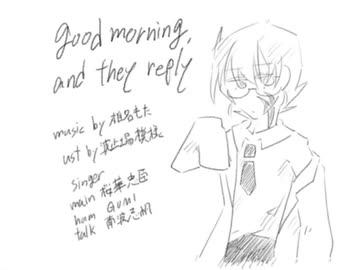 Good morning,
and they reply
music by 椎名もた
ust by
singer
main 桜華忠臣
ham Gumi
talk